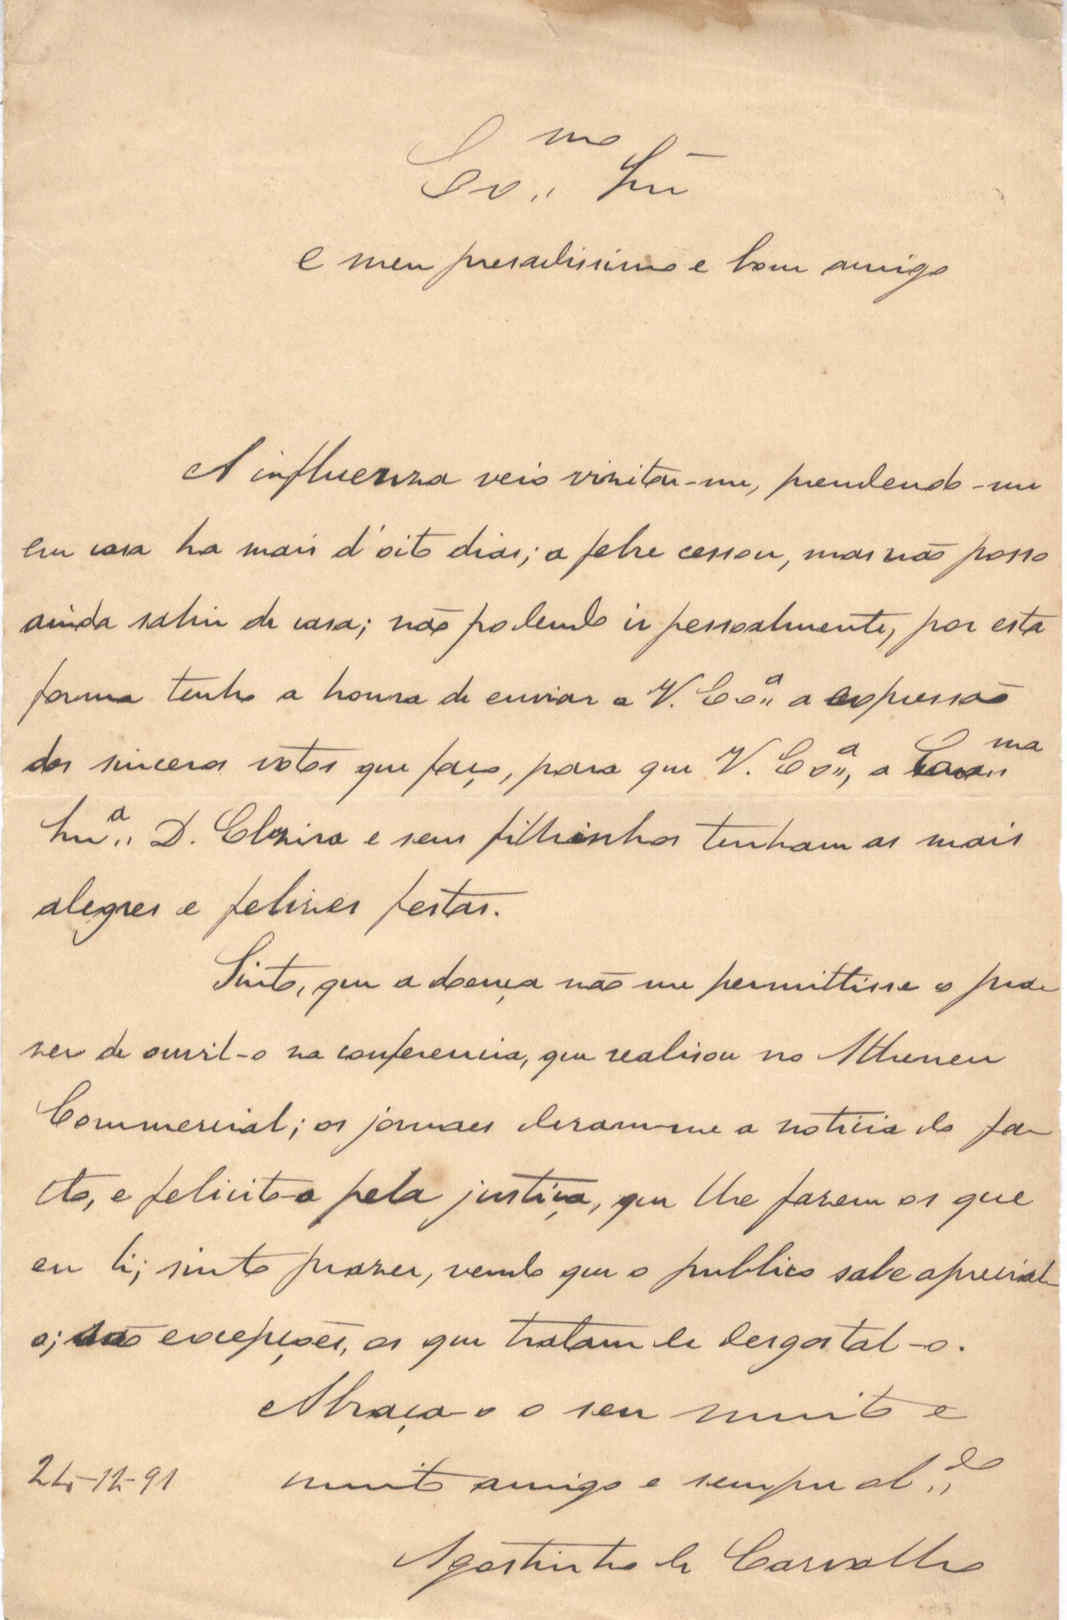 Ex.mo Snr
e meu presadissimo e bom amigo
A influenza veio visitar-me, prendendo-me
em casa ha mais d'oito dias; a febre cessou, mas não posso
ainda sahir de casa; não podendo ir pessoalmente, por esta
forma tenho a honra de enviar a V. Ex.a a expressão
dos sinceros votos que faço, para que V. Ex.a, a Exa.ma
Snr.a D. Elzira e seus filhinhos tenham as mais
alegres e felizes festas.
Sinto, que a doença não me permittisse o pra-
zer de ouvil-o na conferencia, que realisou no Atheneu
Commercial; os jornaes deram-me a noticia do fa-
cto, e felicito-o pela justiça, que lhe fazem os que
eu li; sinto prazer, vendo que o publico sabe aprecial-
o; são excepções, os que tratam de desgostal-o.
Abraça-o o seu muito e
24-12-91 muito amigo e sempre ob.do
Agostinho de Carvalho